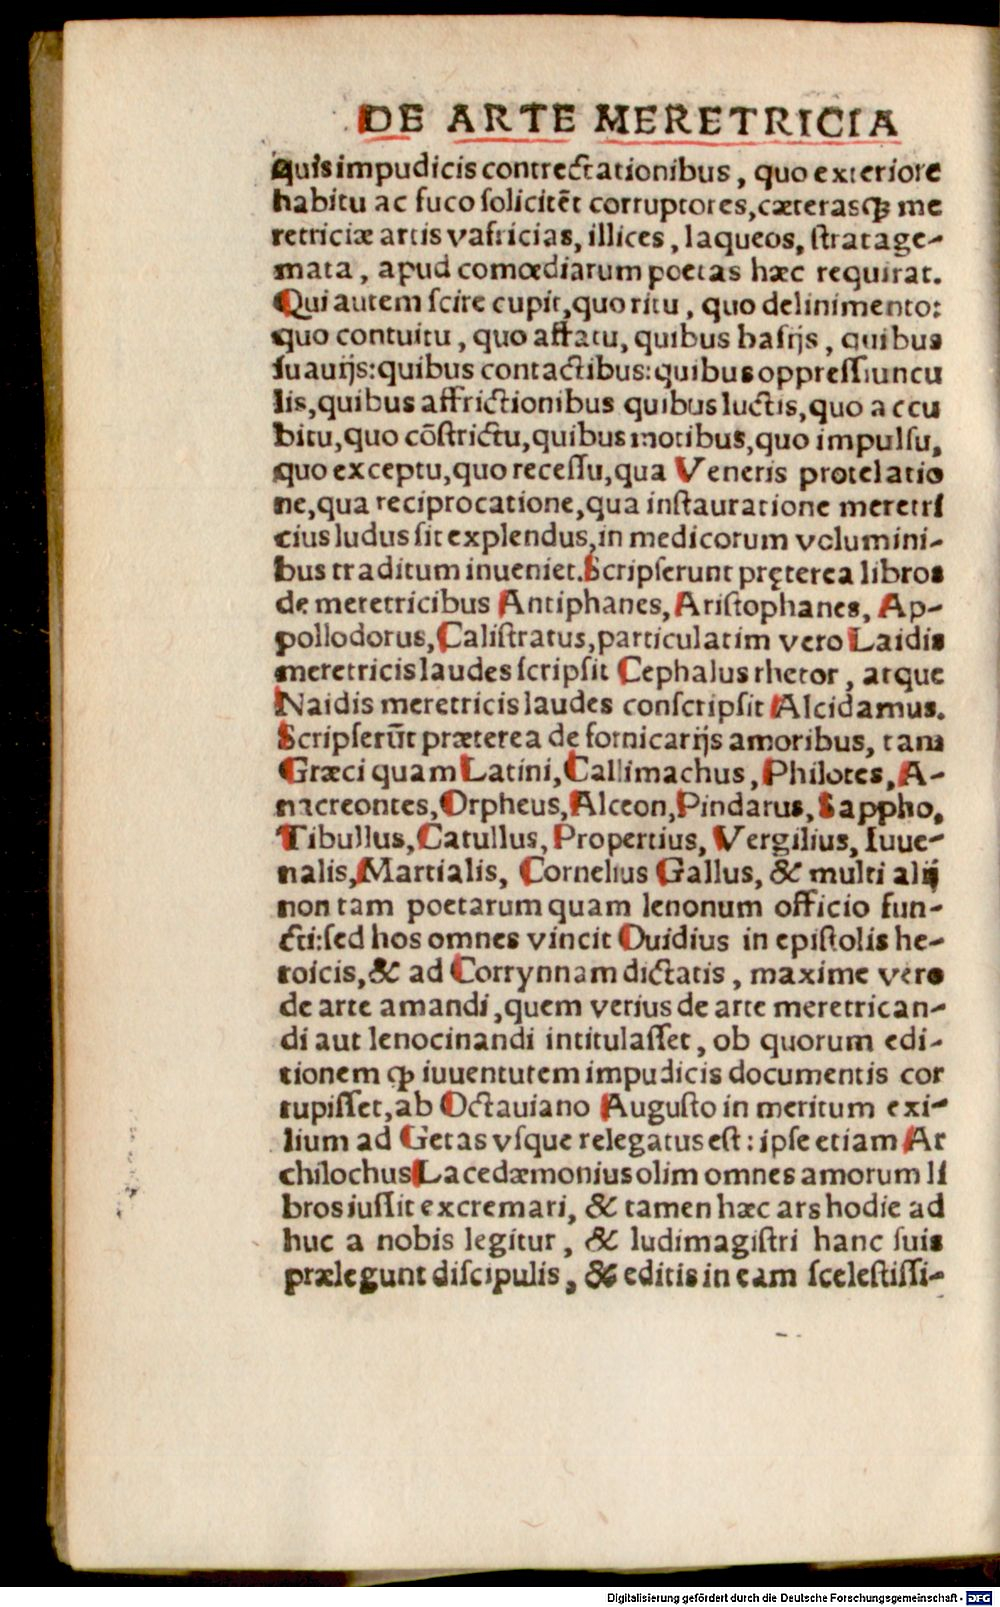 DE ARTE MERETRICIA
quis impudicis contrectationibus, quo exteriore
habitu ac fuco solicitēt corruptores, cæterasq; me
retriciæ artis vafricias, illices, laqueos, stratage-
mata, apud comœdiarum poetas hæc requirat.
Qui autem scire cupit, quo ritu, quo delinimento:
quo contuitu, quo affatu, quibus basijs, quibus
suauijs: quibus contactibus: quibus oppressiuncu
lis, quibus affrictionibus quibus luctis, quo accu
bitu, quo cōstrictu, quibus motibus, quo impulsu,
quo exceptu, quo recessu, qua Veneris protelatio
ne, qua reciprocatione, qua instauratione meretri
cius ludus sit explendus, in medicorum volumini-
bus traditum inueniet. Scripserunt pręterea libros
de meretricibus Antiphanes, Aristophanes, Ap-
pollodorus, Calistratus, particulatim vero Laidis
meretricis laudes scripsit Cephalus rhetor, atque
Naidis meretricis laudes conscripsit Alcidamus.
Scripserūt præterea de fornicarijs amoribus, tam
Græci quam Latini, Callimachus, Philotes, A-
nacreontes, Orpheus, Alceon, Pindarus, Sappho,
Tibullus, Catullus, Propertius, Vergilius, Iuue-
nalis, Martialis, Cornelius Gallus, & multi alij
non tam poetarum quam lenonum officio fun-
cti: sed hos omnes vincit Ouidius in epistolis he-
roicis, & ad Corrynnam dictatis, maxime vero
de arte amandi, quem verius de arte meretrican-
di aut lenocinandi intitulasset, ob quorum edi-
tionem q; iuuentutem impudicis documentis cor
rupisset, ab Octauiano Augusto in meritum exi-
lium ad Getas vsque relegatus est: ipse etiam Ar
chilochus Lacedæmonius olim omnes amorum li
bros iussit excremari, & tamen hæc ars hodie ad
huc a nobis legitur, & ludimagistri hanc suis
prælegunt discipulis, & editis in eam scelestissi-
Digitalisierung gefördert durch die Deutsche Forschungsgemeinschaft - DFG